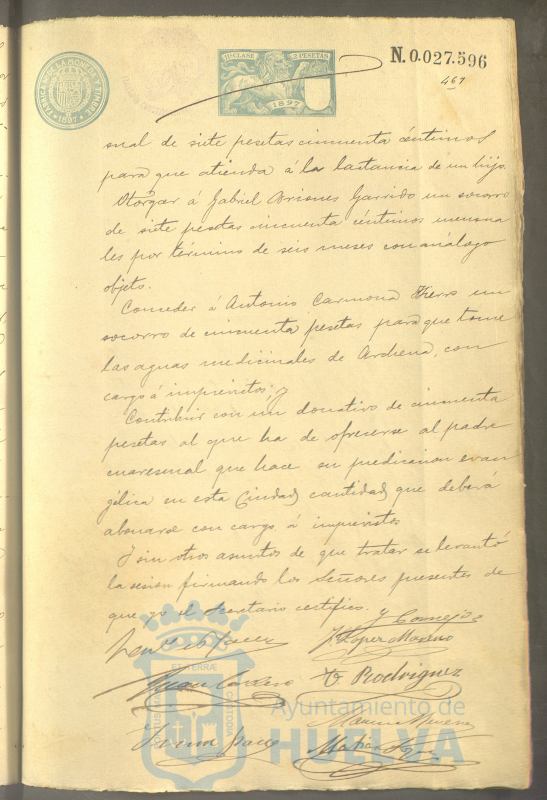 FABRICA DE LA MONEDA Y TIMBRE
1897
11ª CLASE 2 PESETAS
1897
N. 0.027.596
467
sual de siete pesetas cincuenta céntimos
para que atienda á la lactancia de un hijo.
Otorgar á Gabriel Briones Garrido un socorro
de siete pesetas cincuenta céntimos mensua
les por término de seis meses con análogo
objeto.
Conceder á Antonio Carmona Hierro un
socorro de cincuenta pesetas para que tome
las aguas medicinales de Archena, con
cargo á imprevistos; y
Contribuir con un donativo de cincuenta
pesetas al que ha de ofrecerse al padre
cuaresmal que hace su predicacion evan
gélica en esta Ciudad, cantidad que deberá
abonarse con cargo á imprevistos.
Y sin otros asuntos de que tratar se levantó
la sesion firmando los Señores presentes de
que yo el Secretario certifico.
J. Lopez Moreno
Rodriguez
Ayuntamiento de
HUELVA